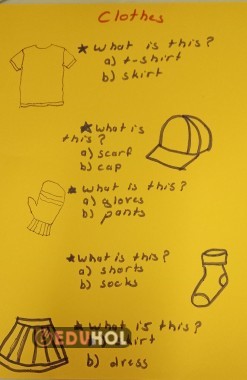 Clothes
★ What is this?
a) t-shirt
b) skirt
★ What is
this?
a) scarf
b) cap
★ What is this?
a) gloves
b) pants
★ What is this?
a) shorts
b) socks
★ What is this?
EDUHOL
b) dress